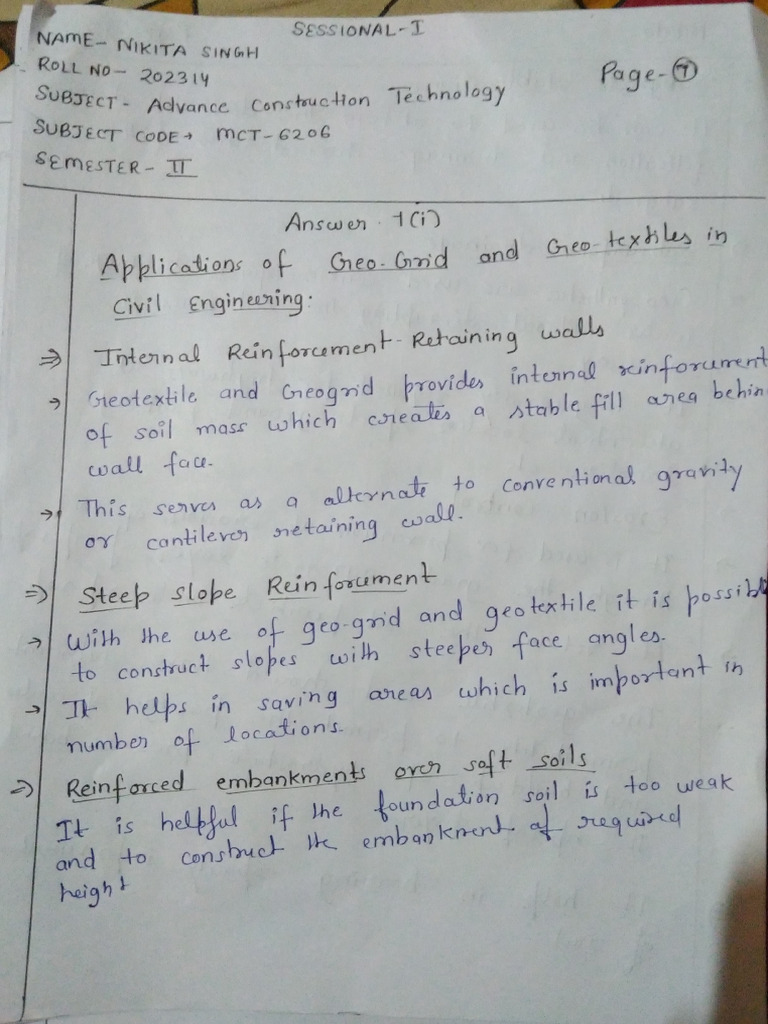 SESSIONAL-I
NAME- NIKITA SINGH
ROLL NO- 202314
Page-1
SUBJECT- Advance Construction Technology
SUBJECT CODE→ MCT-6206
SEMESTER- II
Answer 1(i)
Applications of Geo-Grid and Geo-textiles in
Civil Engineering:
⇒ Internal Reinforcement-Retaining walls
→ Geotextile and Geogrid provides internal reinforcement
of soil mass which creates a stable fill area behin
wall face.
→ This serves as a alternate to conventional gravity
or cantilever retaining wall.
⇒ Steep slope Reinforcement
→ With the use of geo-grid and geotextile it is possibl
to construct slopes with steeper face angles.
→ It helps in saving areas which is important in
number of locations.
⇒ Reinforced embankments over soft soils
It is helpful if the foundation soil is too weak
and to construct the embankment of required
height